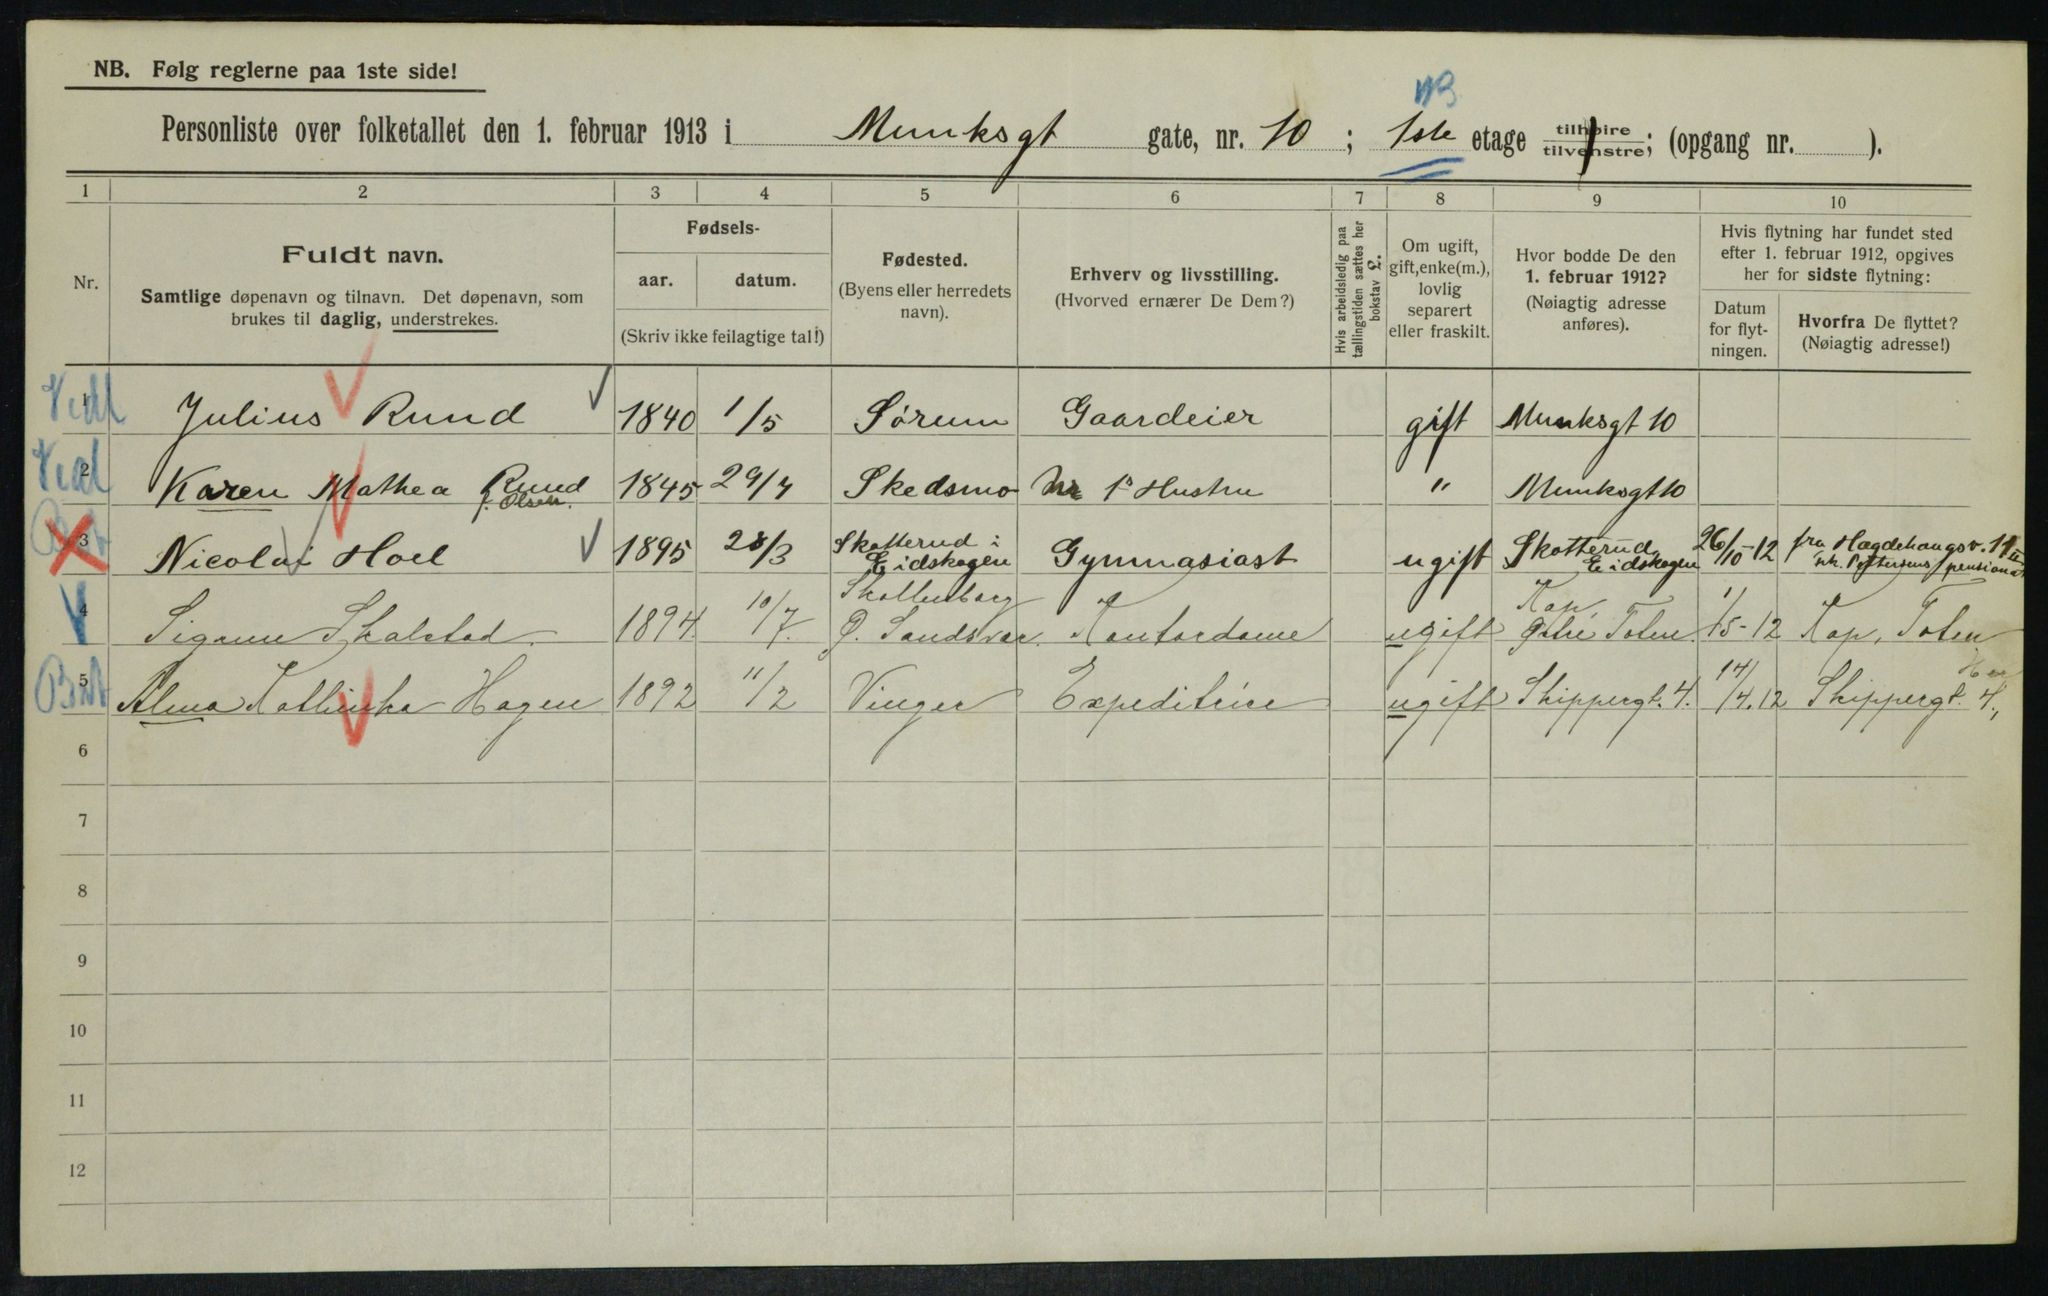 NB. Følg reglerne paa 1ste side!
NB
Personliste over folketallet den 1. februar 1913 i Munksgt gate, nr. 10 ; 1ste etage tilhøire tilvenstre; (opgang nr. ).
1 2 3 4 5 6 7 8 9 10
Nr.
Fuldt navn.
Samtlige døpenavn og tilnavn. Det døpenavn, som
brukes til daglig, understrekes.
Fødsels-
aar. datum.
(Skriv ikke feilagtige tal!)
Fødested.
(Byens eller herredets
navn).
Erhverv og livsstilling.
(Hvorved ernærer De Dem?)
Hvis arbeidsledig paa
tællingstiden sættes her
bokstav L.
Om ugift,
gift, enke(m.),
lovlig
separert
eller fraskilt.
Hvor bodde De den
1. februar 1912?
(Nøiagtig adresse
anføres).
Hvis flytning har fundet sted
efter 1. februar 1912, opgives
her for sidste flytning:
Datum
for flyt-
ningen.
Hvorfra De flyttet?
(Nøiagtig adresse!)
1 Julius Rund 1840 1/5 Sørum Gaardeier gift Munksgt 10
2 Karen Mathea Rund f. Olsen. 1845 29/7 Skedsmo 1s Hustru " Munksgt 10
3 Nicolai Hoel 1895 28/3 Skotterud i Eidskogen Gymnasiast ugift Skotterud, Eidskogen 26/10-12 fra Hægdehaugsv. 11 II pensionat
4 Sigrun Skalstad. 1894. 10/7. Skollenborg Ø. Sandsvær. Kontordame ugift Kap, Østre Toten. 1/5-12 Kap, Toten
5 Alma Kathinka Hagen 1892 11/2 Vinger Expeditrice ugift Skippergt. 4. 14/4.12 Skippergt. 4.,
6
7
8
9
10
11
12